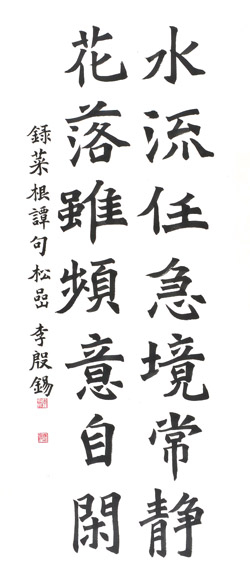 水流任急境常静
花落雖頻意自閑
録菜根譚句 松嵒 李殷錫